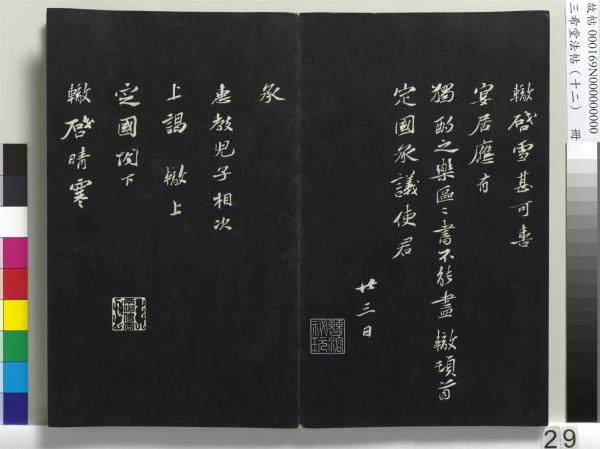 轍啓雪甚可喜
宴居應有
獨酌之樂區〻書不能盡轍頓首
定國承議使君
廿三日
承
惠教兒子相次
上謁轍上
定國閣下
轍啓晴寒
故帖 000169N000000000
三希堂法帖(十二) 冊
29